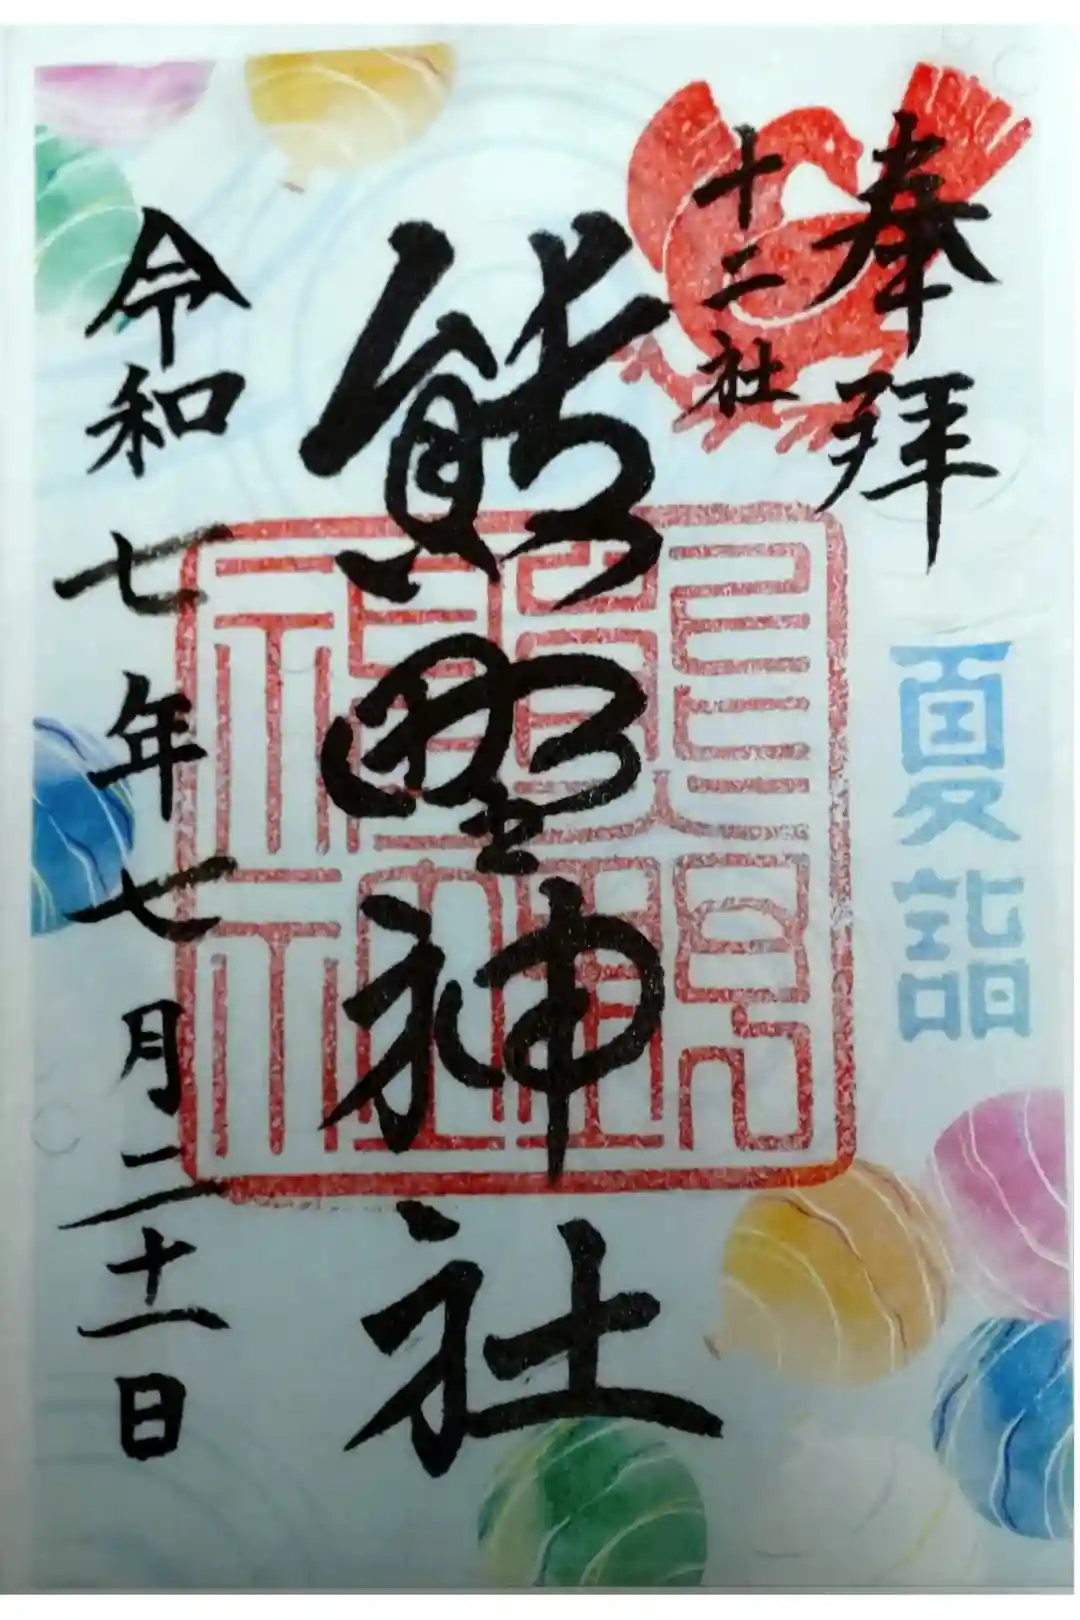 奉拝
夏詣
十二社
熊野神社
令和七年七月二十一日